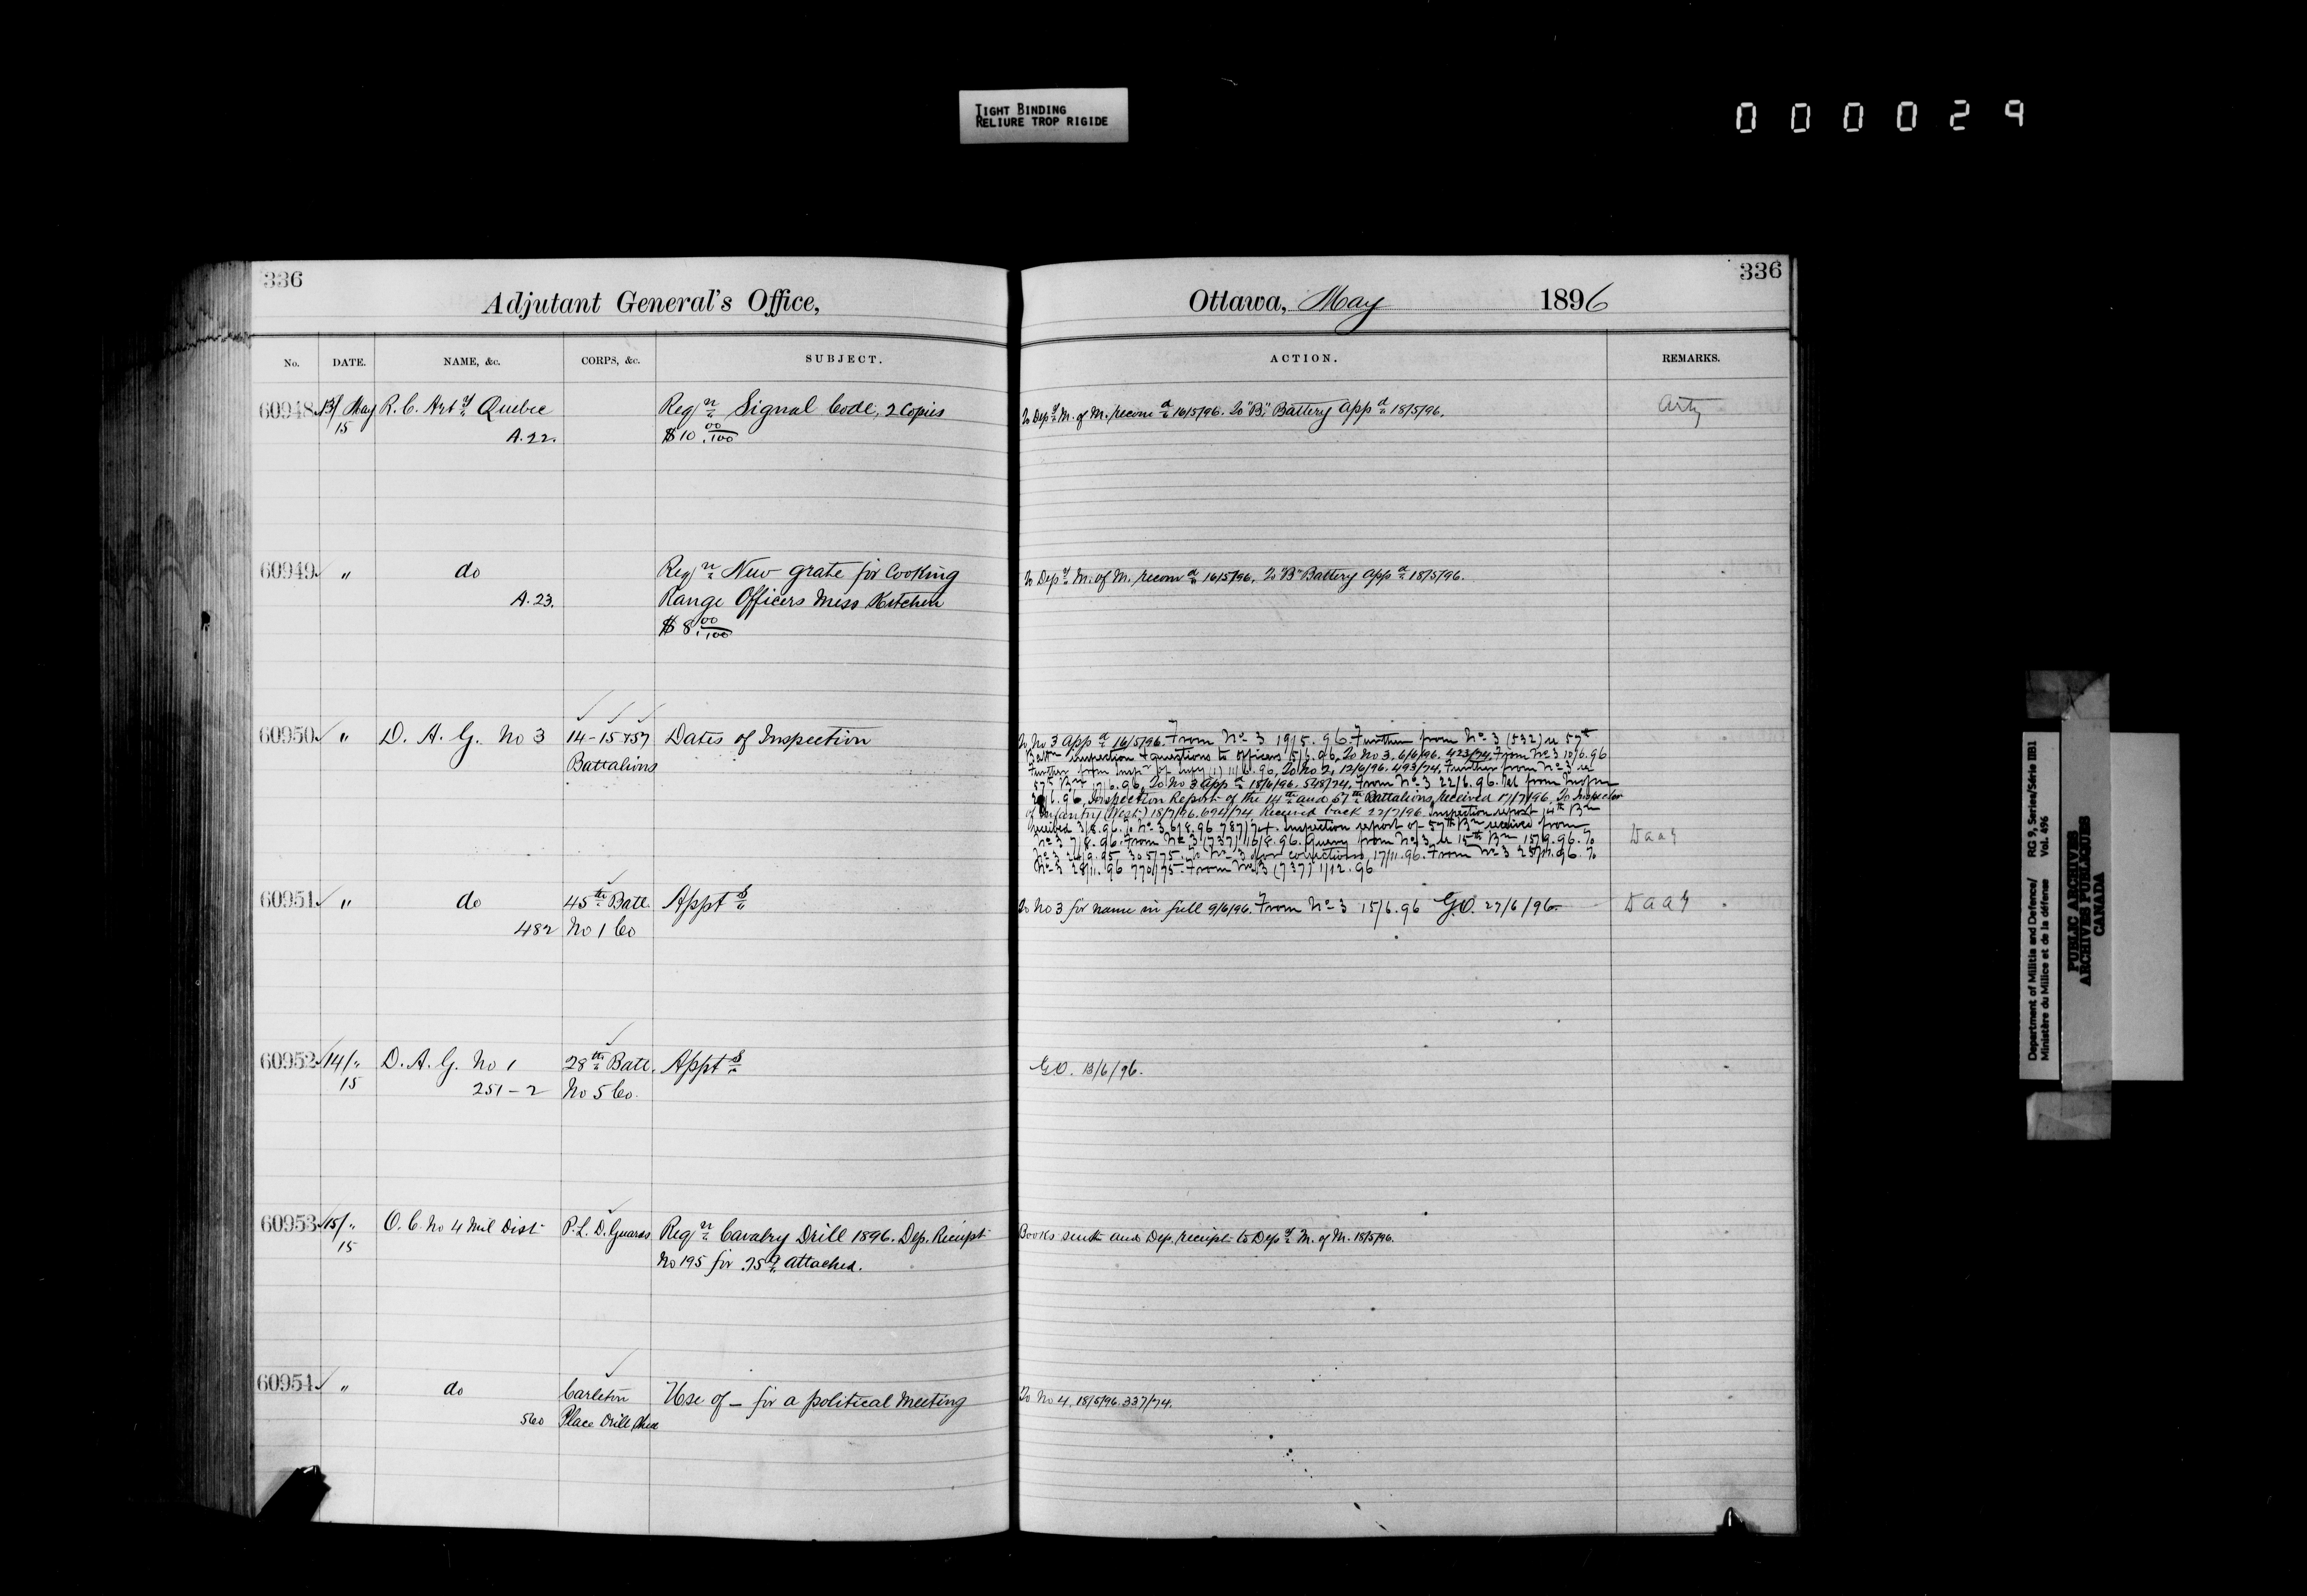 TIGHT BINDING
RELIURE TROP RIGIDE
000029
336
Adjutant General's Office,
No. DATE. NAME, &c. CORPS, &c. SUBJECT.
60948 13/ May R. C. Arty Quebec Reqn Signal Code, 2 Copies
15 A.22. $10 00/100
60949 " do Reqn New grate for Cooking
A.23. Range Officers Mess Kitchen
$8. 00/100
60950 " D. A. G. No 3 14-15+57 Dates of Inspection
Battalions
60951 " do 45th Batt. Appts
482 No 1 Co
60952 14/" D. A. G. No 1 28th Batt. Appts
15 251-2 No 5 Co.
60953 15/" O. C. No 4 Mil Dist P. L. D. Guards Reqn Cavalry Drill 1896. Dep. Receipt
15 No 195 for .75 attached.
60954 " do Carleton Use of - for a political meeting
560 Place Drill Shed
336
Ottawa, May 1896
ACTION. REMARKS.
To Depy M. of M. recomd 16/5/96. To "B" Battery appd 18/5/96. Arty
To Depy M. of M. recomd 16/5/96. To "B" Battery appd 18/5/96.
To No 3 appd 16/5/96. From No 3 19/5.96 Further from No 3 (532) re 57th
Battn inspection + questions to officers 5/6.96. To No 3. 6/6/96. 423/74. From No 3 10/6.96
Further from 11/6.96. To No 2, 12/6/96. 493/74. Further from No 3 re
57th Bn 17/6.96. To No 3 appd 18/6/96. 548/74. From No 3 22/6.96. from
.96. Inspection Report of the 14th and 57th Battalions, received 17/7/96. To Inspector
of Infantry (West) 18/7/96. 694/74 Received back 22/7/96. Inspection report 14th Bn
received 3/8.96. To No 3. 6/8.96 787/74. Inspection report of 57th Bn received from
No 3 7/8.96. From No 3 (737) 16/8.96. Query from No 3 re 15th Bn 15/9.96. To
No 3 305/75. To No 3 for corrections 17/11.96. From No 3 25/11.96. To
No 3 28/11.96 770/75. From No 3 (737) 1/12.96
To No 3 for name in full 9/6/96. From No 3 15/6.96 G.O. 27/6/96.
G.O. 13/6/96.
Books sent and Dep. receipt to Depy M. of M. 18/5/96.
To No 4, 18/5/96. 337/74.
Department of Militia and Defence/ RG 9, Series/Série IIB1
Ministère du Milice et de la défense Vol. 496
PUBLIC ARCHIVES
ARCHIVES PUBLIQUES
CANADA